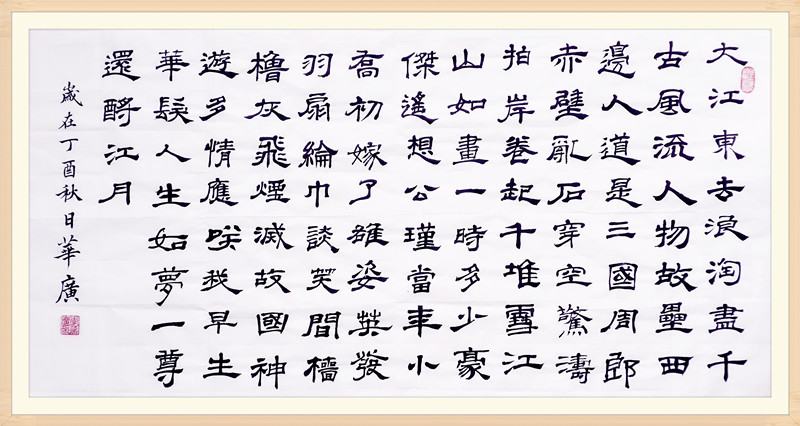 大江東去浪淘盡千
古風流人物故壘西
邊人道是三國周郎
赤壁亂石穿空驚濤
拍岸卷起千堆雪江
山如畫一時多少豪
傑遙想公瑾當年小
喬初嫁了雄姿英發
羽扇綸巾談笑間檣
櫓灰飛煙滅故國神
遊多情應咲我早生
華髮人生如夢一尊
還酹江月
歲在丁酉秋日華廣